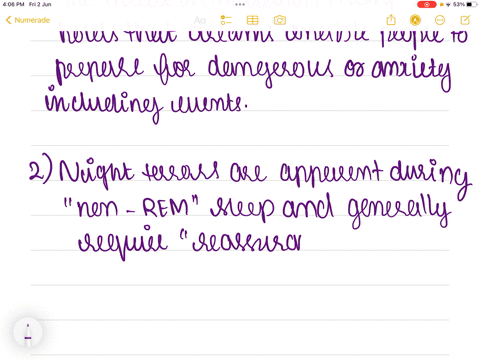 4:06 PM Fri 2 Jun
53%
Numerade
Aa
that dreams enable people to
prepare for dangerous or anxiety
including events.
2) Night terrors are apparent during
"non-REM" sleep and generally
require "reassura